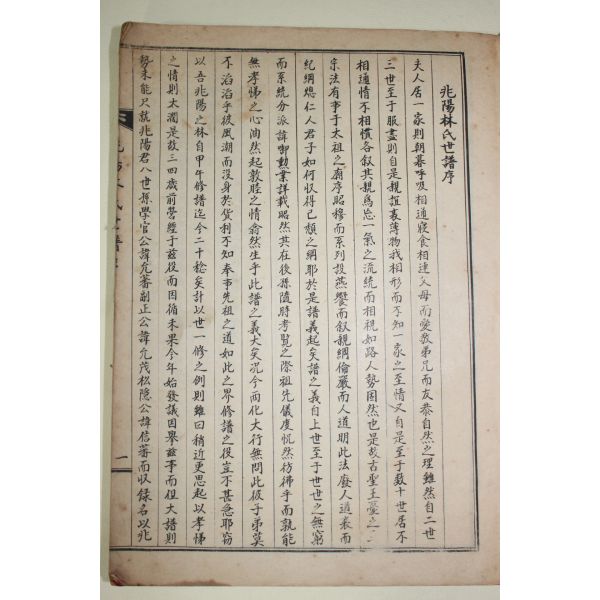 兆陽林氏世譜序
夫人居一家則朝暮呼吸相通寢食相連父母而愛敬弟兄而友恭自然之理雖然自二世
三世至于服盡則自是親誼衰薄物我相形而不知一家之至情又自是至于數十世居不
相通情不相慣各叙其親爲忘一氣之流統而相視如路人勢固然也是故古聖王憂之
宗法有事于太祖之廟序昭穆而系列設燕饗而叙親綱倫嚴而人道明此法廢人道衰而
紀綱隳仁人君子如何収得已頹之綱耶於是譜義起矣譜之義自上世至于世世之無窮
而系統分派諱啣勳業詳載昭然其在後孫隨時考覧之際祖先儀度怳然彷彿乎而孰能
無孝悌之心油然起敦睦之情藹然生乎此譜之義大矣况今西化大行無問此彼子弟莫
不滔滔乎彼風潮而沒身於貨利不知奉事先祖之道如此之界修譜之役豈不甚急耶竊
以吾兆陽之林自甲午修譜迄今二十稔矣計以世一修之例則雖曰稍近更思起以孝悌
之情則太濶是故三四歲前營經于茲役而因循未果今年始發議因舉茲事而但大譜則
勢未能只就兆陽君八世孫學官公諱允蕃副正公諱允茂松隐公諱信蕃而収録名以兆
一